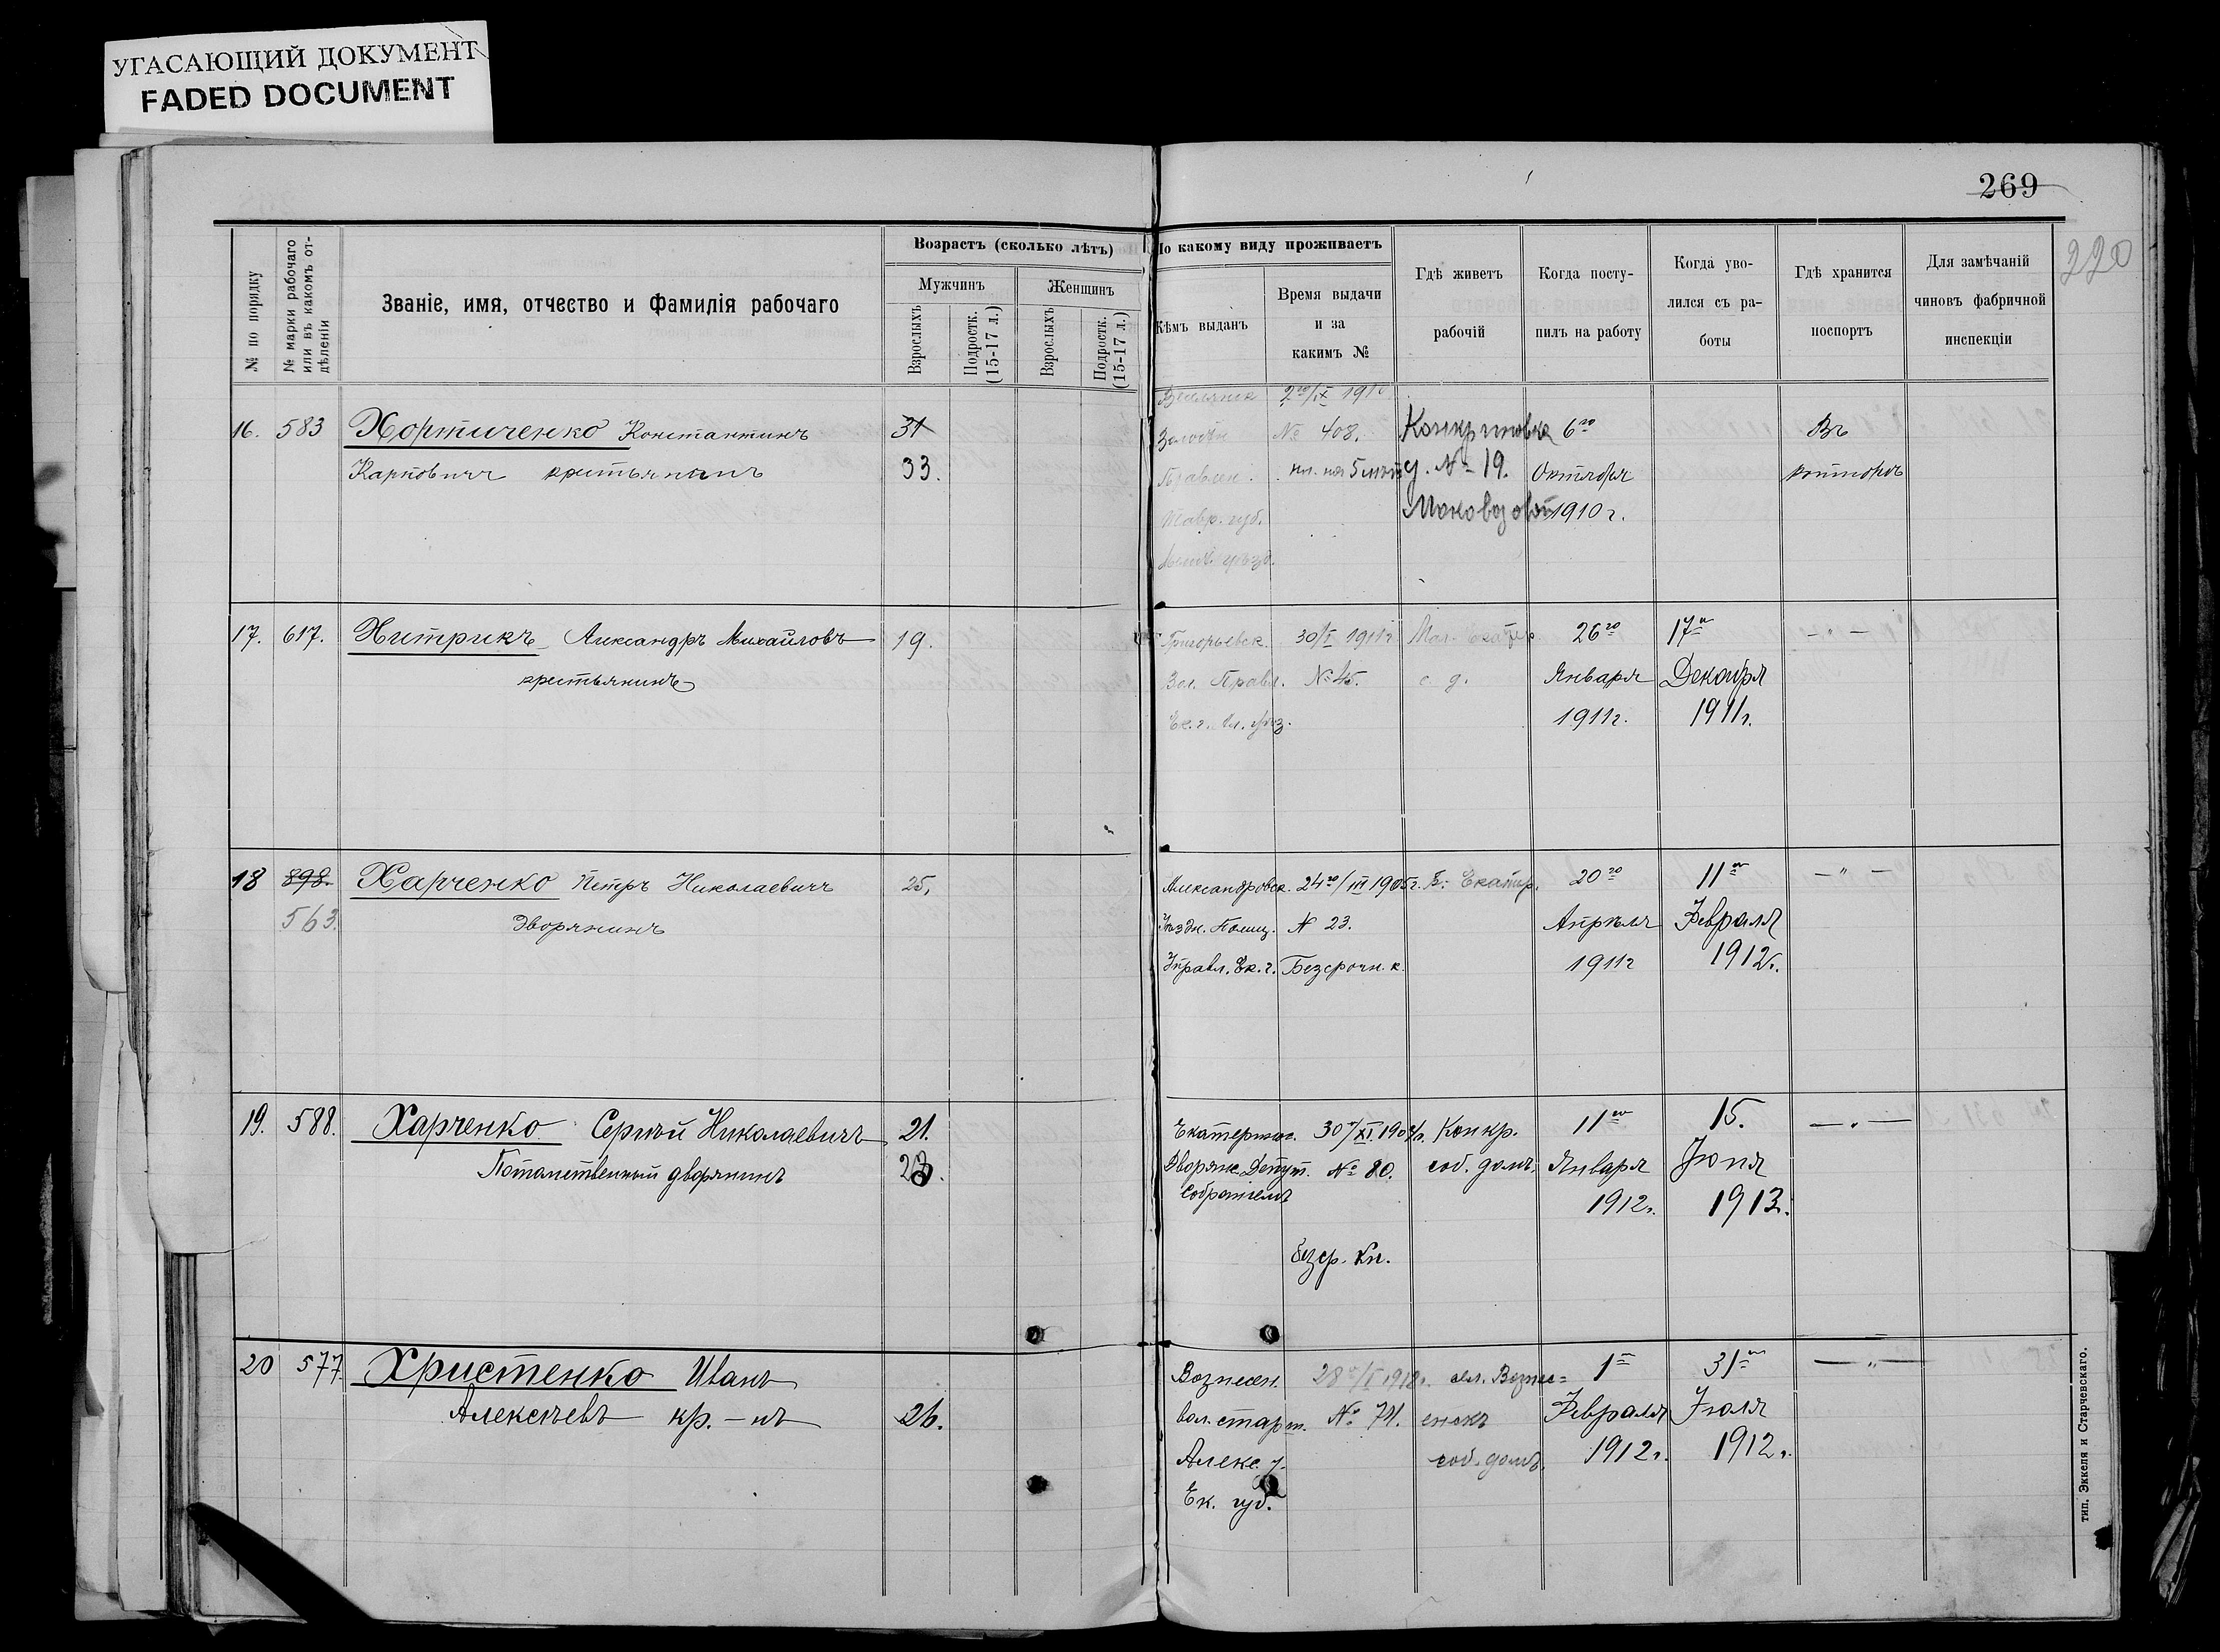 УГАСАЮЩИЙ ДОКУМЕНТ
FADED DOCUMENT
269
220
№ по порядку
№ марки рабочаго или въ какомъ отдѣленіи
Званіе, имя, отчество и фамилія рабочаго
Возрастъ (сколько лѣтъ)
Мужчинъ
Женщинъ
Взрослыхъ
Подростк. (15-17 л.)
Взрослыхъ
Подростк. (15-17 л.)
По какому виду проживаетъ
Кѣмъ выданъ
Время выдачи
и за
какимъ №
Гдѣ живетъ
рабочій
Когда посту-
пилъ на работу
Когда уво-
лился съ ра-
боты
Гдѣ хранится
поспортъ
Для замѣчаній
чиновъ фабричной
инспекціи
16. 583 Хортиченко Константинъ 31
Карповичъ крестьянинъ 33.
1910
№ 408.
Правлен.
Тавр. губ.
д. № 19.
6го
Октября
1910 г.
Въ
конторѣ
17. 617. Хитрикъ Александръ Михайловъ 19.
крестьянинъ
Григорьевск.
Вол. Правл.
30/I 1911 г.
№ 45.
с. д.
26го
Января
1911 г.
17го
Декабря
1911 г.
— " —
18 898. Харченко Петръ Николаевичъ 25.
563. Дворянинъ
Александровск.
Уѣздн. Полиц.
Управл. Ек. г.
24го/III 1905 г.
№ 23.
Безсрочн. к.
Б. Екатер.
20го
Апрѣля
1911 г
11го
Февраля
1912 г.
— " —
19. 588. Харченко Сергѣй Николаевичъ 21.
Потомственный дворянинъ 23.
Дворянс. Депут.
Собраніемъ
№ 80.
безср. кн.
Конкр.
соб. домъ.
11го
Января
1912 г.
15.
Іюня
1913 г.
— " —
20 577 Христенко Иванъ
Алексѣевъ кр.-нъ 26.
Вознесен.
вол. старш.
Алекс. у.
Ек. губ.
28го/I 1912 г.
№ 74.
сел. Вознес=
енскъ
соб. домъ.
1го
Февраля
1912 г.
31го
Іюля
1912 г.
— " —
тип. Эккеля и Старчевскаго.